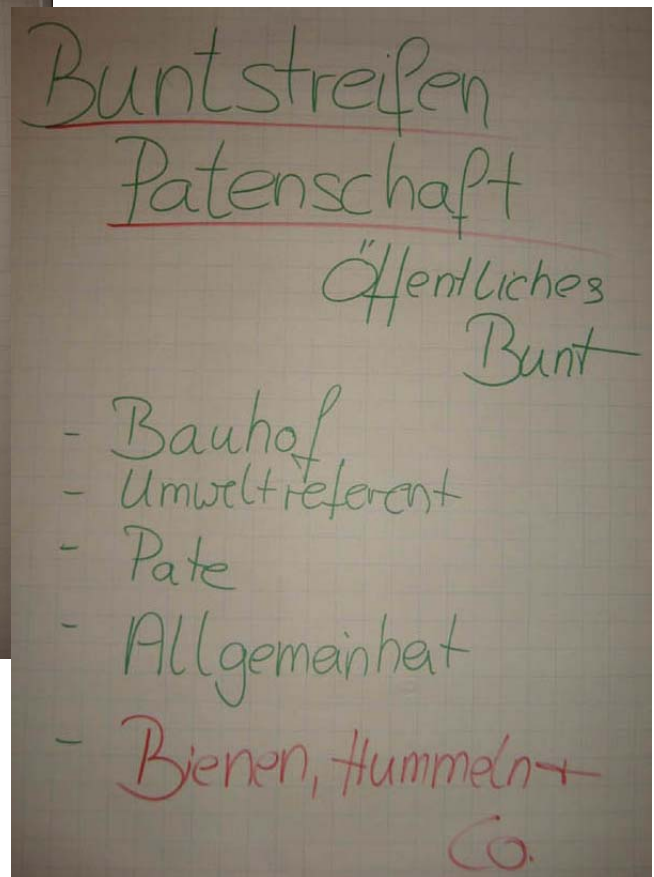 Buntstreifen
Patenschaft
Öffentliches
Bunt
- Bauhof
- Umweltreferent
- Pate
- Allgemeinheit
- Bienen, Hummeln +
Co.